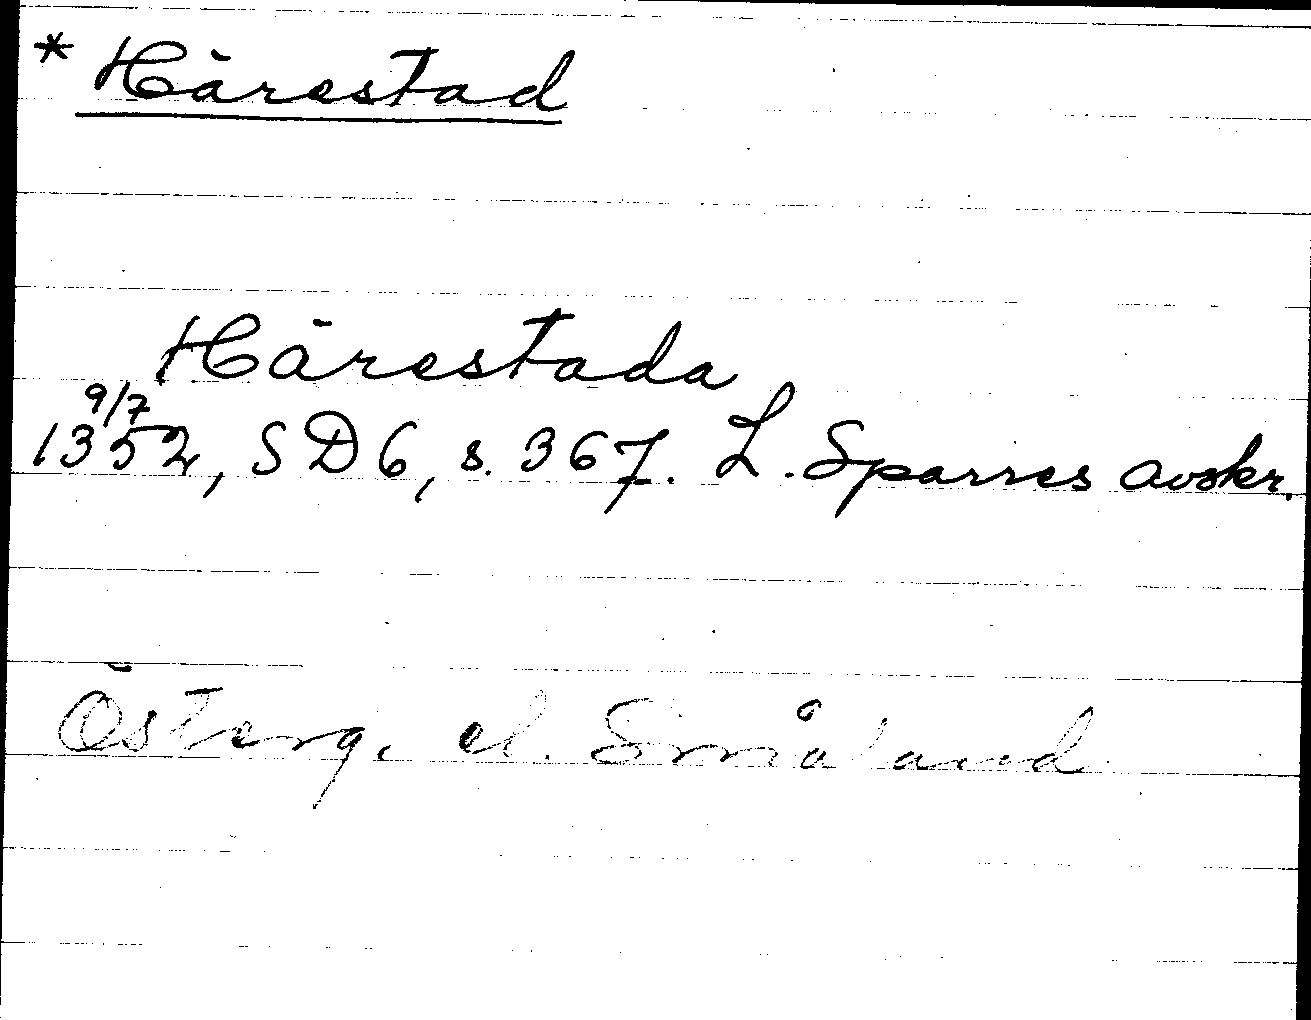 * Härestad
Härestada
9/7
1352, SD 6, s. 367. L. Sparres avskr.
Österg. el. Småland